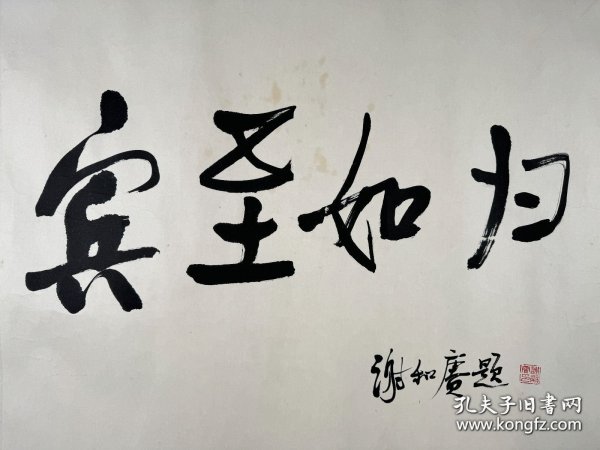 宾至如归
谢和赓题
孔夫子旧書网
www.kongfz.com